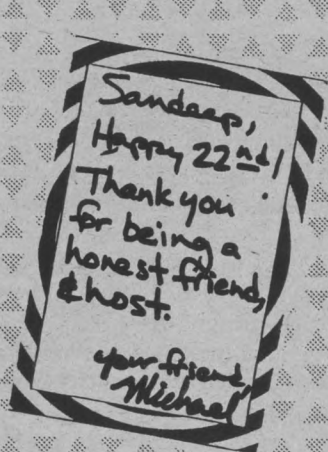 Sandeep,
Happy 22nd!
Thank you
for being a
honest friend,
& host.
your friend,
Michael